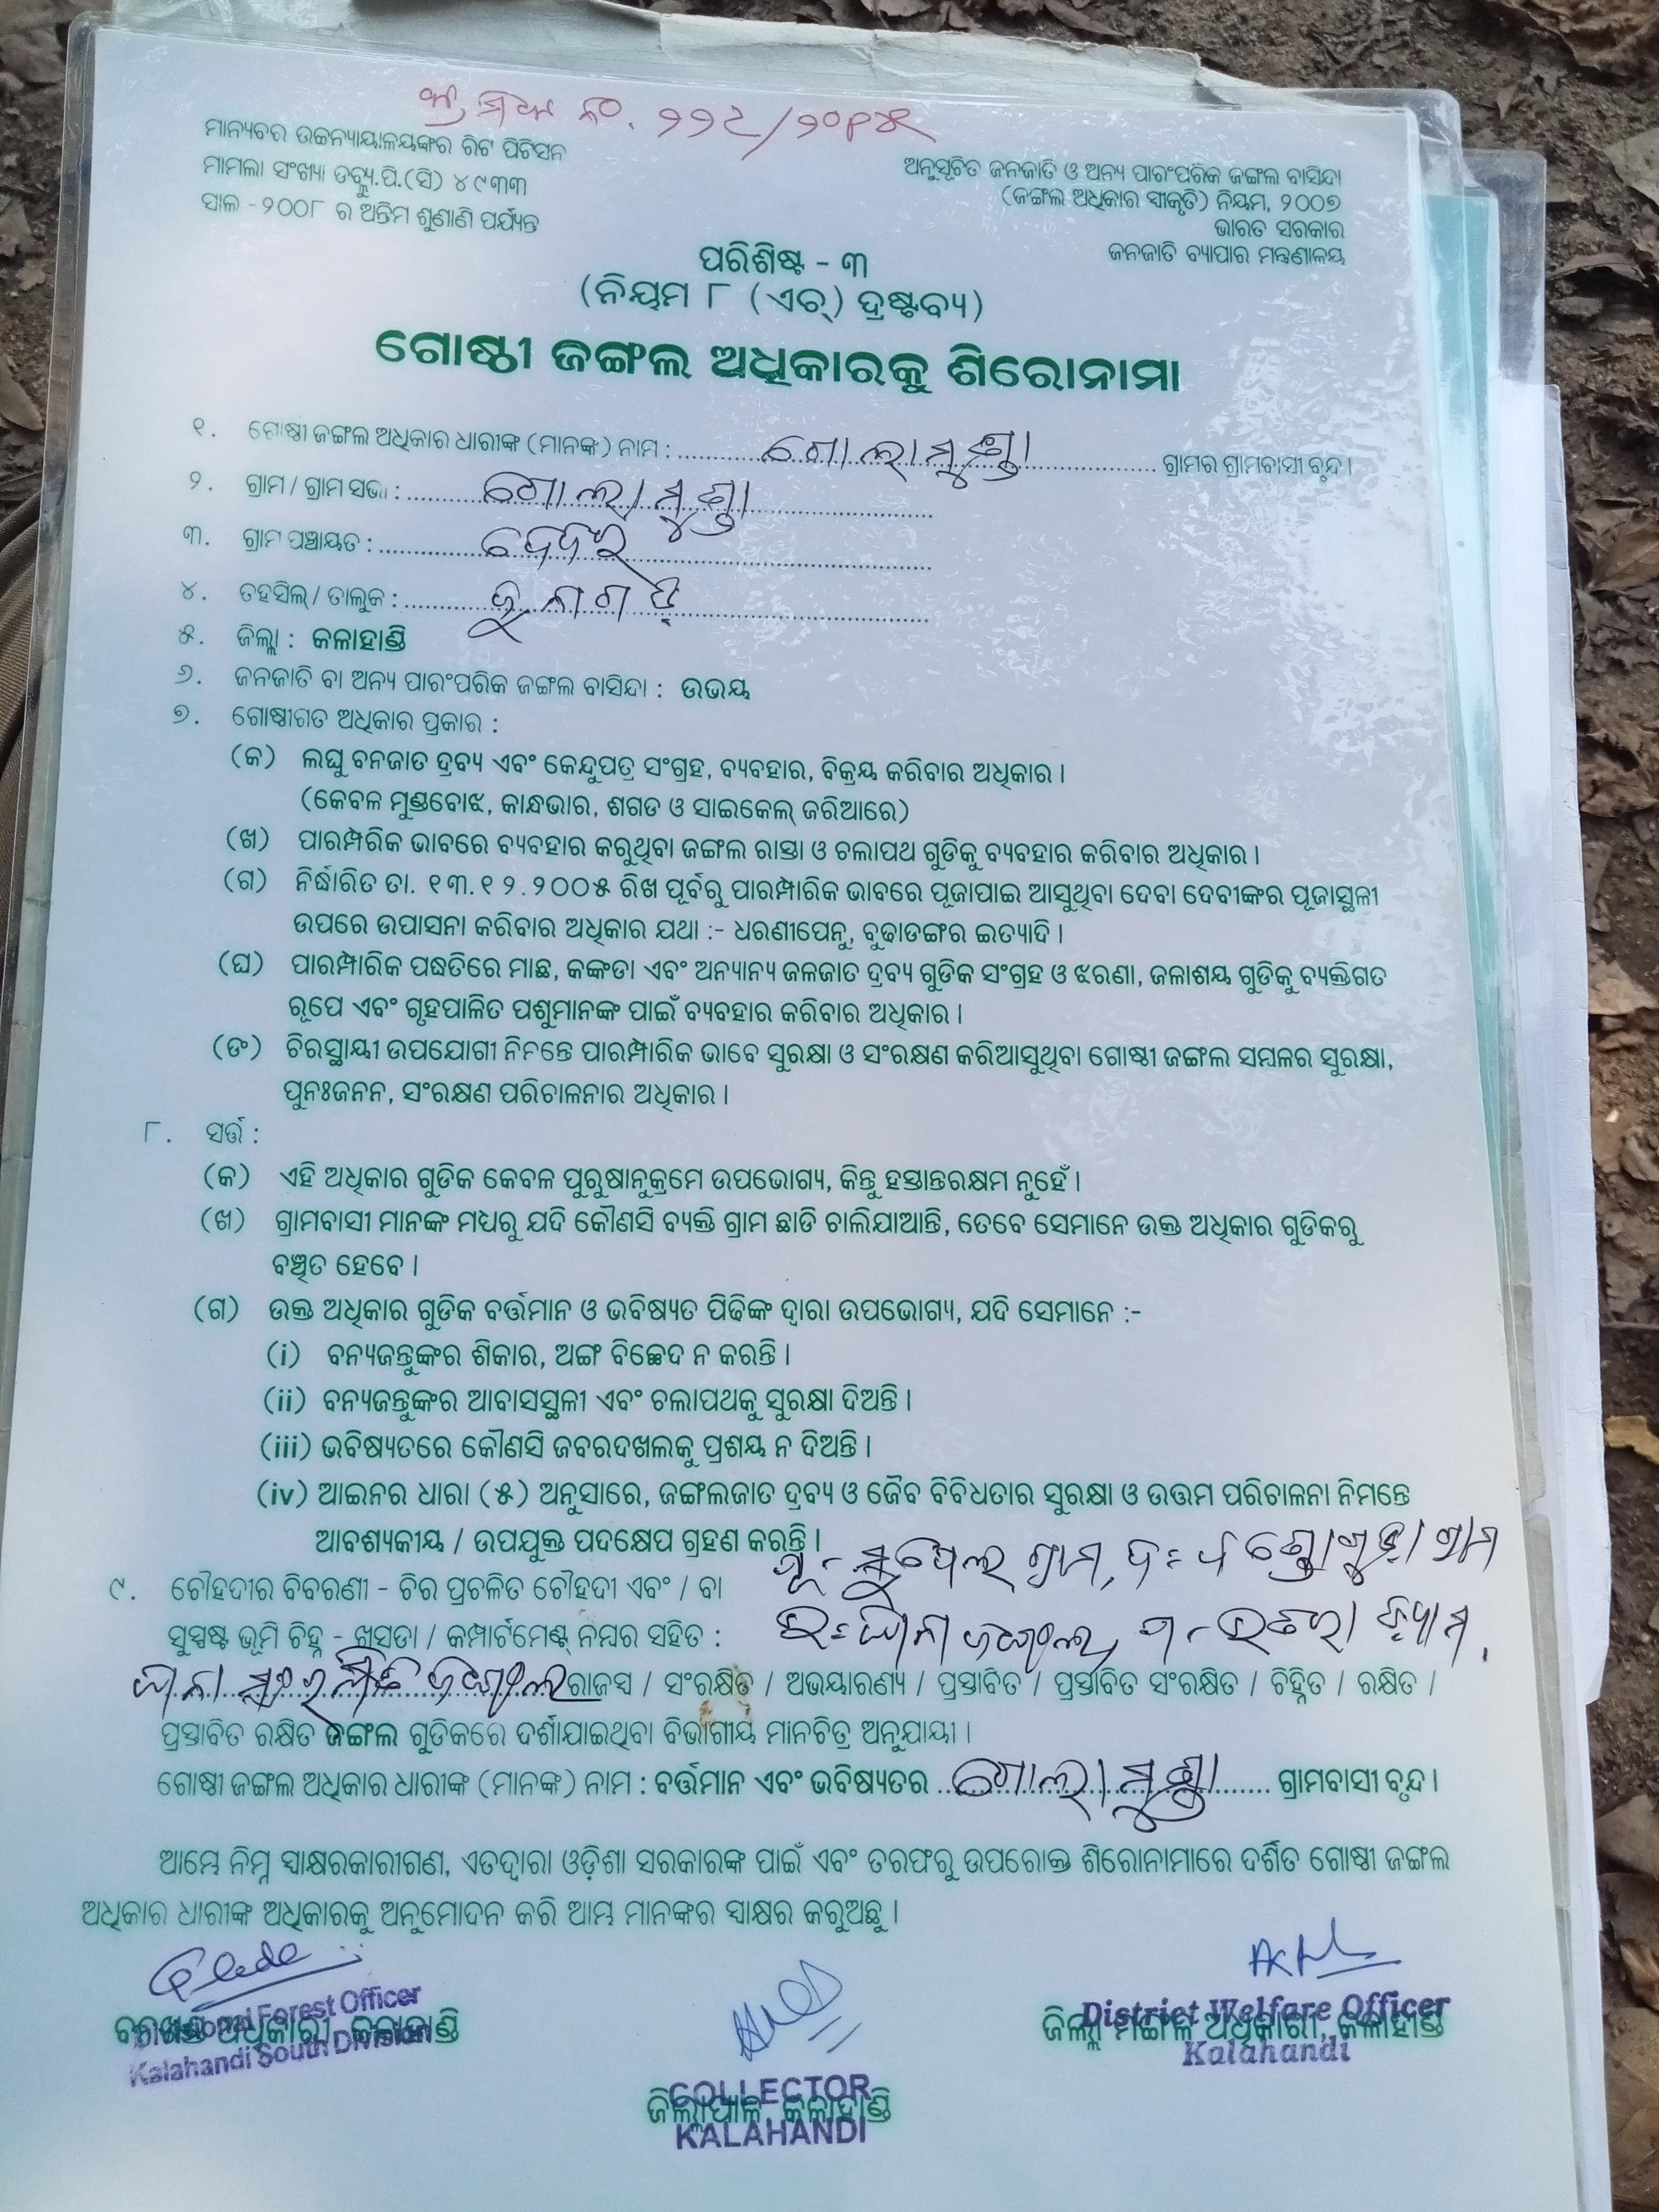 ମାନ୍ୟବର ଉଚ୍ଚନ୍ୟାୟାଳୟଙ୍କର ରିଟ ପିଟିସନ
ମାମଲା ସଂଖ୍ୟା ଡବ୍ଲ୍ୟୁ.ପି.(ସି) ୪୯୩୩
ସାଳ -୨୦୦୮ ର ଅନ୍ତିମ ଶୁଣାଣି ପର୍ଯ୍ୟନ୍ତ
ଅନୁସୂଚିତ ଜନଜାତି ଓ ଅନ୍ୟ ପାରଂପରିକ ଜଙ୍ଗଲ ବାସିନ୍ଦା
(ଜଙ୍ଗଲ ଅଧିକାର ସ୍ୱୀକୃତି) ନିୟମ, ୨୦୦୭
ଭାରତ ସରକାର
ଜନଜାତି ବ୍ୟାପାର ମନ୍ତ୍ରଣାଳୟ
ପରିଶିଷ୍ଟ - ୩
(ନିୟମ ୮ (ଏଚ୍) ଦ୍ରଷ୍ଟବ୍ୟ)
ଗୋଷ୍ଠୀ ଜଙ୍ଗଲ ଅଧିକାରକୁ ଶିରୋନାମା
୧. ଗୋଷ୍ଠୀ ଜଙ୍ଗଲ ଅଧିକାର ଧାରୀଙ୍କ (ମାନଙ୍କ) ନାମ : ଗୋଲାମୁଣ୍ଡା ଗ୍ରାମର ଗ୍ରାମବାସୀ ବୃନ୍ଦ ।
୨. ଗ୍ରାମ / ଗ୍ରାମ ସଭା : ଗୋଲାମୁଣ୍ଡା
୩. ଗ୍ରାମ ପଞ୍ଚାୟତ :
୪. ତହସିଲ୍ / ତାଲୁକ :
୫. ଜିଲ୍ଲା : କଳାହାଣ୍ଡି
୬. ଜନଜାତି ବା ଅନ୍ୟ ପାରଂପରିକ ଜଙ୍ଗଲ ବାସିନ୍ଦା : ଉଭୟ
୭. ଗୋଷ୍ଠୀଗତ ଅଧିକାର ପ୍ରକାର :
(କ) ଲଘୁ ବନଜାତ ଦ୍ରବ୍ୟ ଏବଂ କେନ୍ଦୁପତ୍ର ସଂଗ୍ରହ, ବ୍ୟବହାର, ବିକ୍ରୟ କରିବାର ଅଧିକାର ।
(କେବଳ ମୁଣ୍ଡବୋଝ, କାନ୍ଧଭାର, ଶଗଡ ଓ ସାଇକେଲ୍ ଜରିଆରେ)
(ଖ) ପାରମ୍ପରିକ ଭାବରେ ବ୍ୟବହାର କରୁଥିବା ଜଙ୍ଗଲ ରାସ୍ତା ଓ ଚଲାପଥ ଗୁଡିକୁ ବ୍ୟବହାର କରିବାର ଅଧିକାର ।
(ଗ) ନିର୍ଦ୍ଧାରିତ ତା. ୧୩.୧୨.୨୦୦୫ ରିଖ ପୂର୍ବରୁ ପାରମ୍ପାରିକ ଭାବରେ ପୂଜାପାଇ ଆସୁଥିବା ଦେବା ଦେବୀଙ୍କର ପୂଜାସ୍ଥଳୀ
ଉପରେ ଉପାସନା କରିବାର ଅଧିକାର ଯଥା :- ଧରଣୀପେନୁ, ବୁଢାଡଙ୍ଗର ଇତ୍ୟାଦି ।
(ଘ) ପାରମ୍ପାରିକ ପଦ୍ଧତିରେ ମାଛ, କଙ୍କଡା ଏବଂ ଅନ୍ୟାନ୍ୟ ଜଳଜାତ ଦ୍ରବ୍ୟ ଗୁଡିକ ସଂଗ୍ରହ ଓ ଝରଣା, ଜଳାଶୟ ଗୁଡିକୁ ବ୍ୟକ୍ତିଗତ
ରୂପେ ଏବଂ ଗୃହପାଳିତ ପଶୁମାନଙ୍କ ପାଇଁ ବ୍ୟବହାର କରିବାର ଅଧିକାର ।
(ଙ) ଚିରସ୍ଥାୟୀ ଉପଯୋଗୀ ନିମନ୍ତେ ପାରମ୍ପାରିକ ଭାବେ ସୁରକ୍ଷା ଓ ସଂରକ୍ଷଣ କରିଆସୁଥିବା ଗୋଷ୍ଠୀ ଜଙ୍ଗଲ ସମ୍ବଳର ସୁରକ୍ଷା,
ପୁନଃଜନନ, ସଂରକ୍ଷଣ ପରିଚାଳନାର ଅଧିକାର ।
୮. ସର୍ତ୍ତ :
(କ) ଏହି ଅଧିକାର ଗୁଡିକ କେବଳ ପୁରୁଷାନୁକ୍ରମେ ଉପଭୋଗ୍ୟ, କିନ୍ତୁ ହସ୍ତାନ୍ତରକ୍ଷମ ନୁହେଁ ।
(ଖ) ଗ୍ରାମବାସୀ ମାନଙ୍କ ମଧ୍ୟରୁ ଯଦି କୌଣସି ବ୍ୟକ୍ତି ଗ୍ରାମ ଛାଡି ଚାଲିଯାଆନ୍ତି, ତେବେ ସେମାନେ ଉକ୍ତ ଅଧିକାର ଗୁଡିକରୁ
ବଞ୍ଚିତ ହେବେ ।
(ଗ) ଉକ୍ତ ଅଧିକାର ଗୁଡିକ ବର୍ତ୍ତମାନ ଓ ଭବିଷ୍ୟତ ପିଢିଙ୍କ ଦ୍ୱାରା ଉପଭୋଗ୍ୟ, ଯଦି ସେମାନେ :-
(i) ବନ୍ୟଜନ୍ତୁଙ୍କର ଶିକାର, ଅଙ୍ଗ ବିଚ୍ଛେଦ ନ କରନ୍ତି ।
(ii) ବନ୍ୟଜନ୍ତୁଙ୍କର ଆବାସସ୍ଥଳୀ ଏବଂ ଚଲାପଥକୁ ସୁରକ୍ଷା ଦିଅନ୍ତି ।
(iii) ଭବିଷ୍ୟତରେ କୌଣସି ଜବରଦଖଲକୁ ପ୍ରଶୟ ନ ଦିଅନ୍ତି ।
(iv) ଆଇନର ଧାରା (୫) ଅନୁସାରେ, ଜଙ୍ଗଲଜାତ ଦ୍ରବ୍ୟ ଓ ଜୈବ ବିବିଧତାର ସୁରକ୍ଷା ଓ ଉତ୍ତମ ପରିଚାଳନା ନିମନ୍ତେ
ଆବଶ୍ୟକୀୟ / ଉପଯୁକ୍ତ ପଦକ୍ଷେପ ଗ୍ରହଣ କରନ୍ତି ।
୯. ଚୌହଦୀର ବିବରଣୀ - ଚିର ପ୍ରଚଳିତ ଚୌହଦୀ ଏବଂ / ବା
ସୁସ୍ପଷ୍ଟ ଭୂମି ଚିହ୍ନ - ଖସଡା / କମ୍ପାର୍ଟମେଣ୍ଟ୍ ନମ୍ବର ସହିତ :
ରାଜସ୍ୱ / ସଂରକ୍ଷିତ / ଅଭୟାରଣ୍ୟ / ପ୍ରସ୍ତାବିତ / ପ୍ରସ୍ତାବିତ ସଂରକ୍ଷିତ / ଚିହ୍ନିତ / ରକ୍ଷିତ /
ପ୍ରସ୍ତାବିତ ରକ୍ଷିତ ଜଙ୍ଗଲ ଗୁଡିକରେ ଦର୍ଶାଯାଇଥିବା ବିଭାଗୀୟ ମାନଚିତ୍ର ଅନୁଯାୟୀ ।
ଗୋଷ୍ଠୀ ଜଙ୍ଗଲ ଅଧିକାର ଧାରୀଙ୍କ (ମାନଙ୍କ) ନାମ : ବର୍ତ୍ତମାନ ଏବଂ ଭବିଷ୍ୟତର ଗୋଲାମୁଣ୍ଡା ଗ୍ରାମବାସୀ ବୃନ୍ଦ ।
ଆମ୍ଭେ ନିମ୍ନ ସ୍ୱାକ୍ଷରକାରୀଗଣ, ଏତଦ୍ୱାରା ଓଡ଼ିଶା ସରକାରଙ୍କ ପାଇଁ ଏବଂ ତରଫରୁ ଉପରୋକ୍ତ ଶିରୋନାମାରେ ଦର୍ଶିତ ଗୋଷ୍ଠୀ ଜଙ୍ଗଲ
ଅଧିକାର ଧାରୀଙ୍କ ଅଧିକାରକୁ ଅନୁମୋଦନ କରି ଆମ୍ଭ ମାନଙ୍କର ସ୍ୱାକ୍ଷର କରୁଅଛୁ ।
Divisional Forest Officer
ବନଖଣ୍ଡ ଅଧିକାରୀ, କଳାହାଣ୍ଡି
Kalahandi South Division
District Welfare Officer
ଜିଲ୍ଲା ମଙ୍ଗଳ ଅଧିକାରୀ, କଳାହାଣ୍ଡି
Kalahandi
COLLECTOR
ଜିଲ୍ଲାପାଳ କଳାହାଣ୍ଡି
KALAHANDI